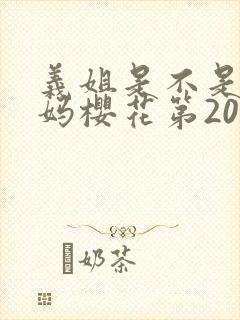 義姐是不是
妈樱花第20
奶茶